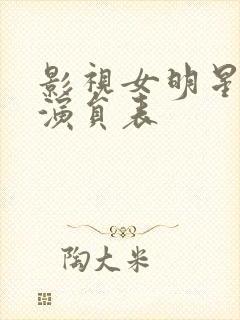 影视女明星
演员表
陶大米